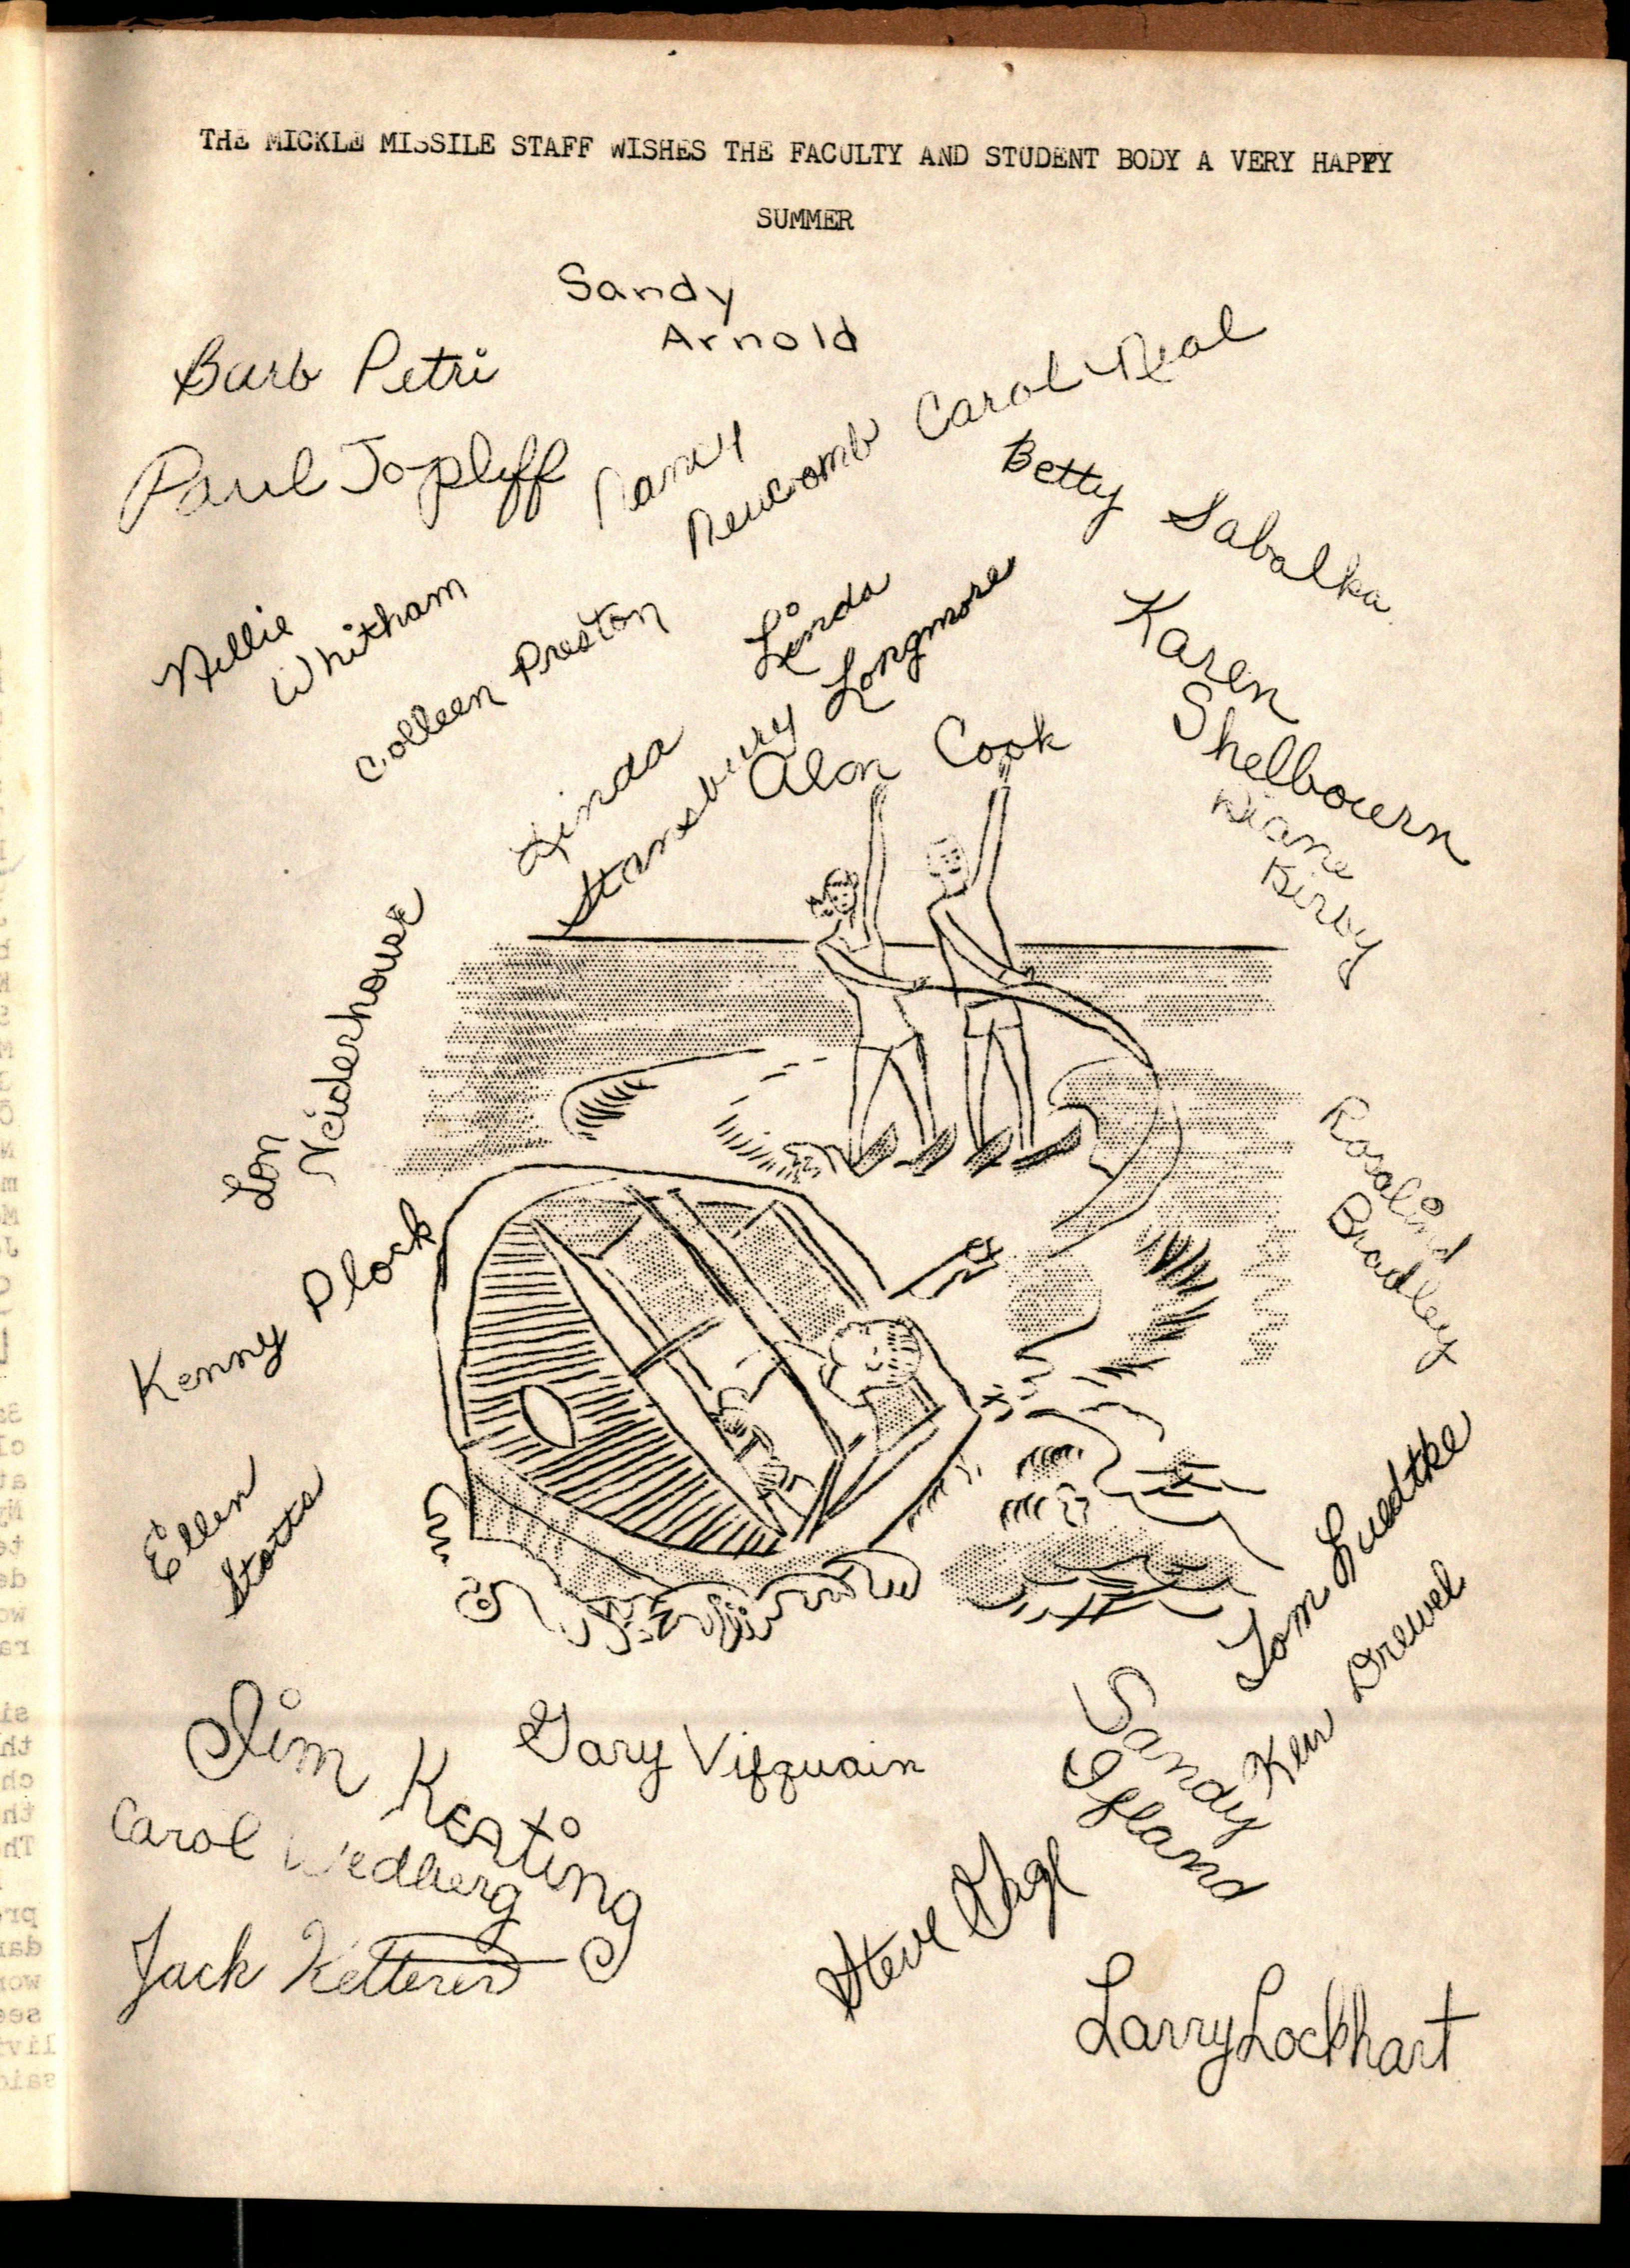 THE MICKLE MISSILE STAFF WISHES THE FACULTY AND STUDENT BODY A VERY HAPPY
SUMMER
Sandy
Arnold
Barb Petri
Carol Neal
Paul Jopliff
Nancy
Newcomb
Betty Sabalka
Nellie
Whitham
Colleen Preston
Linda
Longmore
Karen
Shelbourn
Linda
Stansbury
Alan Cook
Diane
Kirby
Lon
Neiderhouse
Rosalind
Bradley
Kenny Plock
Ellen
Stotts
Tom Luedtke
Ken Drewel
Jim Keating
Gary Vifquain
Sandy
Ifland
Carol Wedberg
Steve
Jack Ketterer
Larry Lockhart